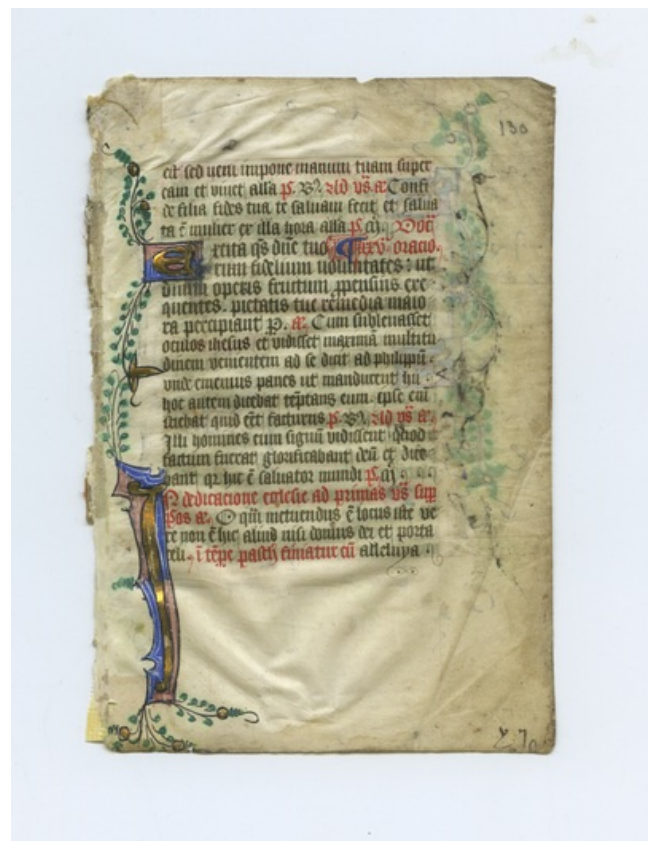 130
cīt sed veni impone manum tuam super
eam et vivet alla p̄. B. ald v̄s. æ Confi
de filia fides tua te salvam fecit et salva
ta ē mulier ex illa hora alla p̄.
Excita q̄s dn̄e tuo xxv oracio.
rum fidelium voluntates: ut
divini operis fructum propensius exe
quentes. pietatis tue remedia maio
ra percipiant P. æ. Cum sublevasset
oculos ihesus et vidisset maximā multitu
dinem venientem ad se dicit ad philippū
unde ememus panes ut manducent hii
hoc autem dicebat tēptans eum. ipse eni
sciebat quid eēt facturus p̄. B. ald v̄s æ.
Illi homines cum signū vidissent quod
factum fuerat glorificabant deū et dice
bant qr hic ē salvator mundi p̄.
In dedicacione eglesie ad primas v̄s sup
p̄os æ. O qm̄ metuendus ē locus iste ve
re non ē hic aliud nisi domus dei et porta
celi. ī tēpe pasch finiatur cū alleluya